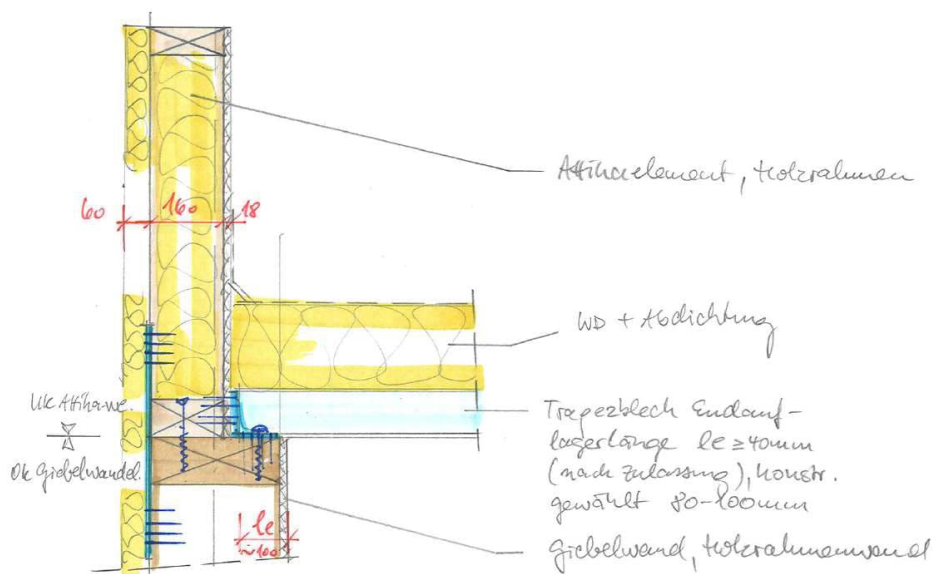 Attikaelement, Holzrahmen
60 160 18
WD + Abdichtung
UK Attikawe.
OK Giebelwandel.
Tragezblech Endauf-
lagerlänge le ≥ 40mm
(nach Zulassung), konstr.
gewählt 80-100mm
le
~100
Giebelwand, Holzrahmenwand